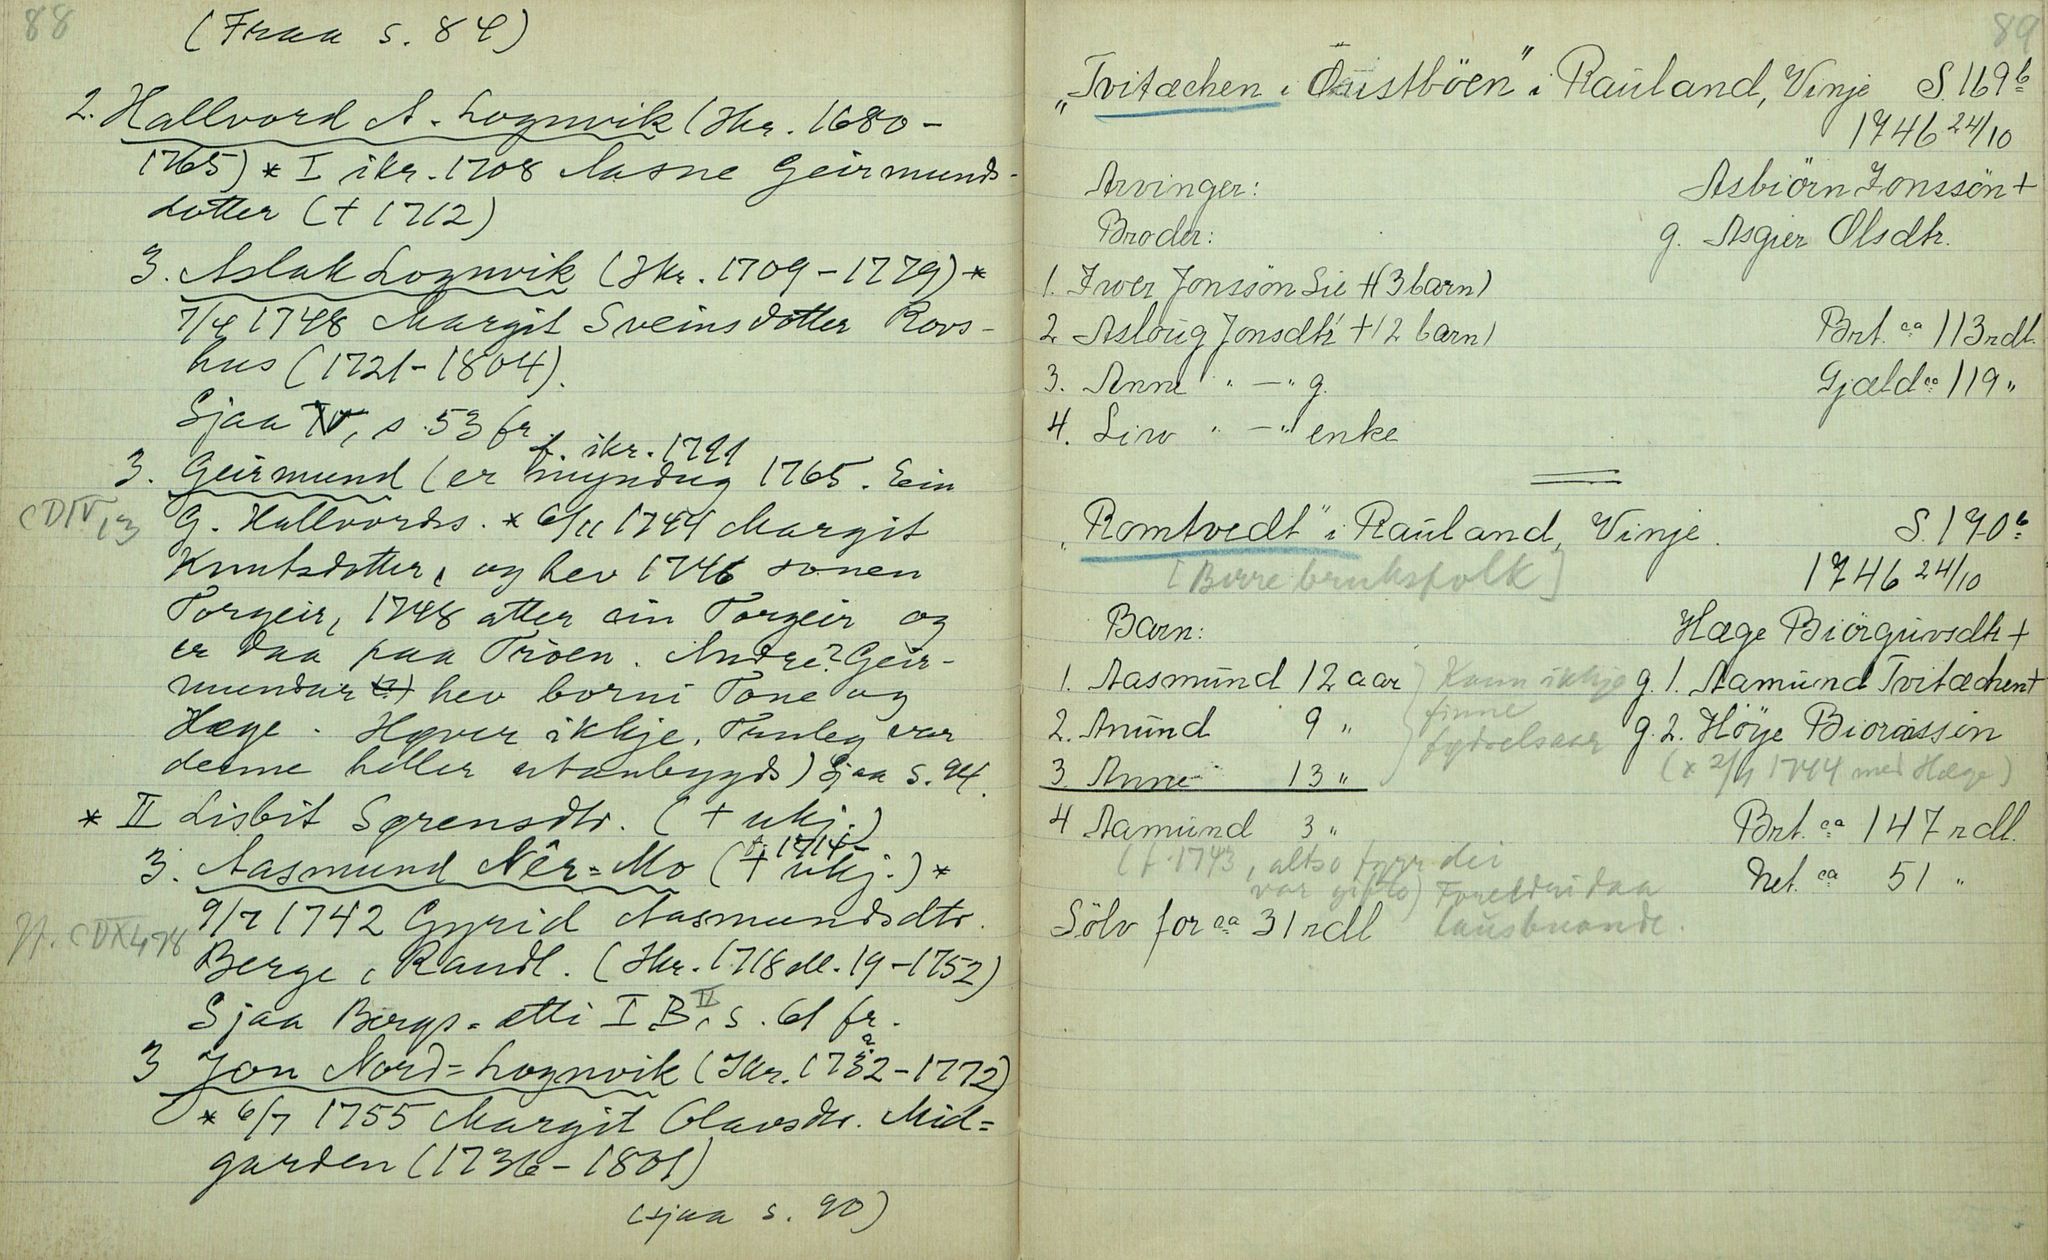 88
(Fraa s. 84)
2. Hallvord A. Lognvik (Ikr. 1680-
1765) * I ikr. 1708 Aasne Geirmunds-
dotter (+ 1712)
3. Aslak Lognvik (Ikr. 1709-1779) *
7/4 1748 Margit Sveinsdotter Rovs-
hus (1721-1804).
Sjaa IV, s. 53 fr.
f. ikr. 1711
3. Geirmund (er myndug 1765. Ein
CDIV 13
G. Hallvords. * 6/11 1744 Margit
Knutsdotter, og hev 1746 sonen
Torgeir, 1748 atter ein Torgeir og
er daa paa Tröen. Andre? Geir-
mundar (?) hev borni Tone og
Hæge. Høver ikkje. Truleg var
denne heller utanbygds) Sjaa s. 94.
* II Lisbit Sørensdtr. (+ ukj.)
f. 1714
3. Aasmund Nêr-Mo (+ ukj.) *
9/7 1742 Gyrid Aasmundsdtr.
Jf. CDX 478
Berge, Raudl. (Ikr. 1718 ell. 19-1752)
Sjaa Bergs-ætti I B, II s. 61 fr.
3 Jon Nord-Lognvik (Ikr. 1732-1772)
* 6/7 1755 Margit Olavsdr. Mid-
garden (1736-1801)
(sjaa s. 90)
89
"Tvitæchen i Öüistböen" i Raüland, Vinje S. 169 b
1746 24/10
Arvinger: Asbiörn Jonssön +
Broder: g. Asgier Olsdtr.
1. Iwer Jonssön Lie + (3 barn)
2 Asloüg Jonsdtr + (2 barn) Brt. ca 113 rdl.
3. Anne " — " g. Gjæld ca 119 "
4. Liw " — " enke
"Romtvedt" i Raüland, Vinje. S. 170 b
[Berre bruksfolk] 1746 24/10
Barn: Hæge Biörgüvsdtr +
1. Aasmünd 12 aar Kann ikkje g. 1. Aamünd Tvitæchen +
2. Anünd 9 " finne g. 2. Höye Biorü̈ssen
fydselsaar
3. Anne 13 " (* 2/7 1744 med Hæge)
4 Aamünd 3 " Brt. ca 147 rdl.
(f. 1743, altso fyrr dei
var gifte) Foreldri daa Net. ca 51 "
Sölv for ca 31 rdl lausbuande.